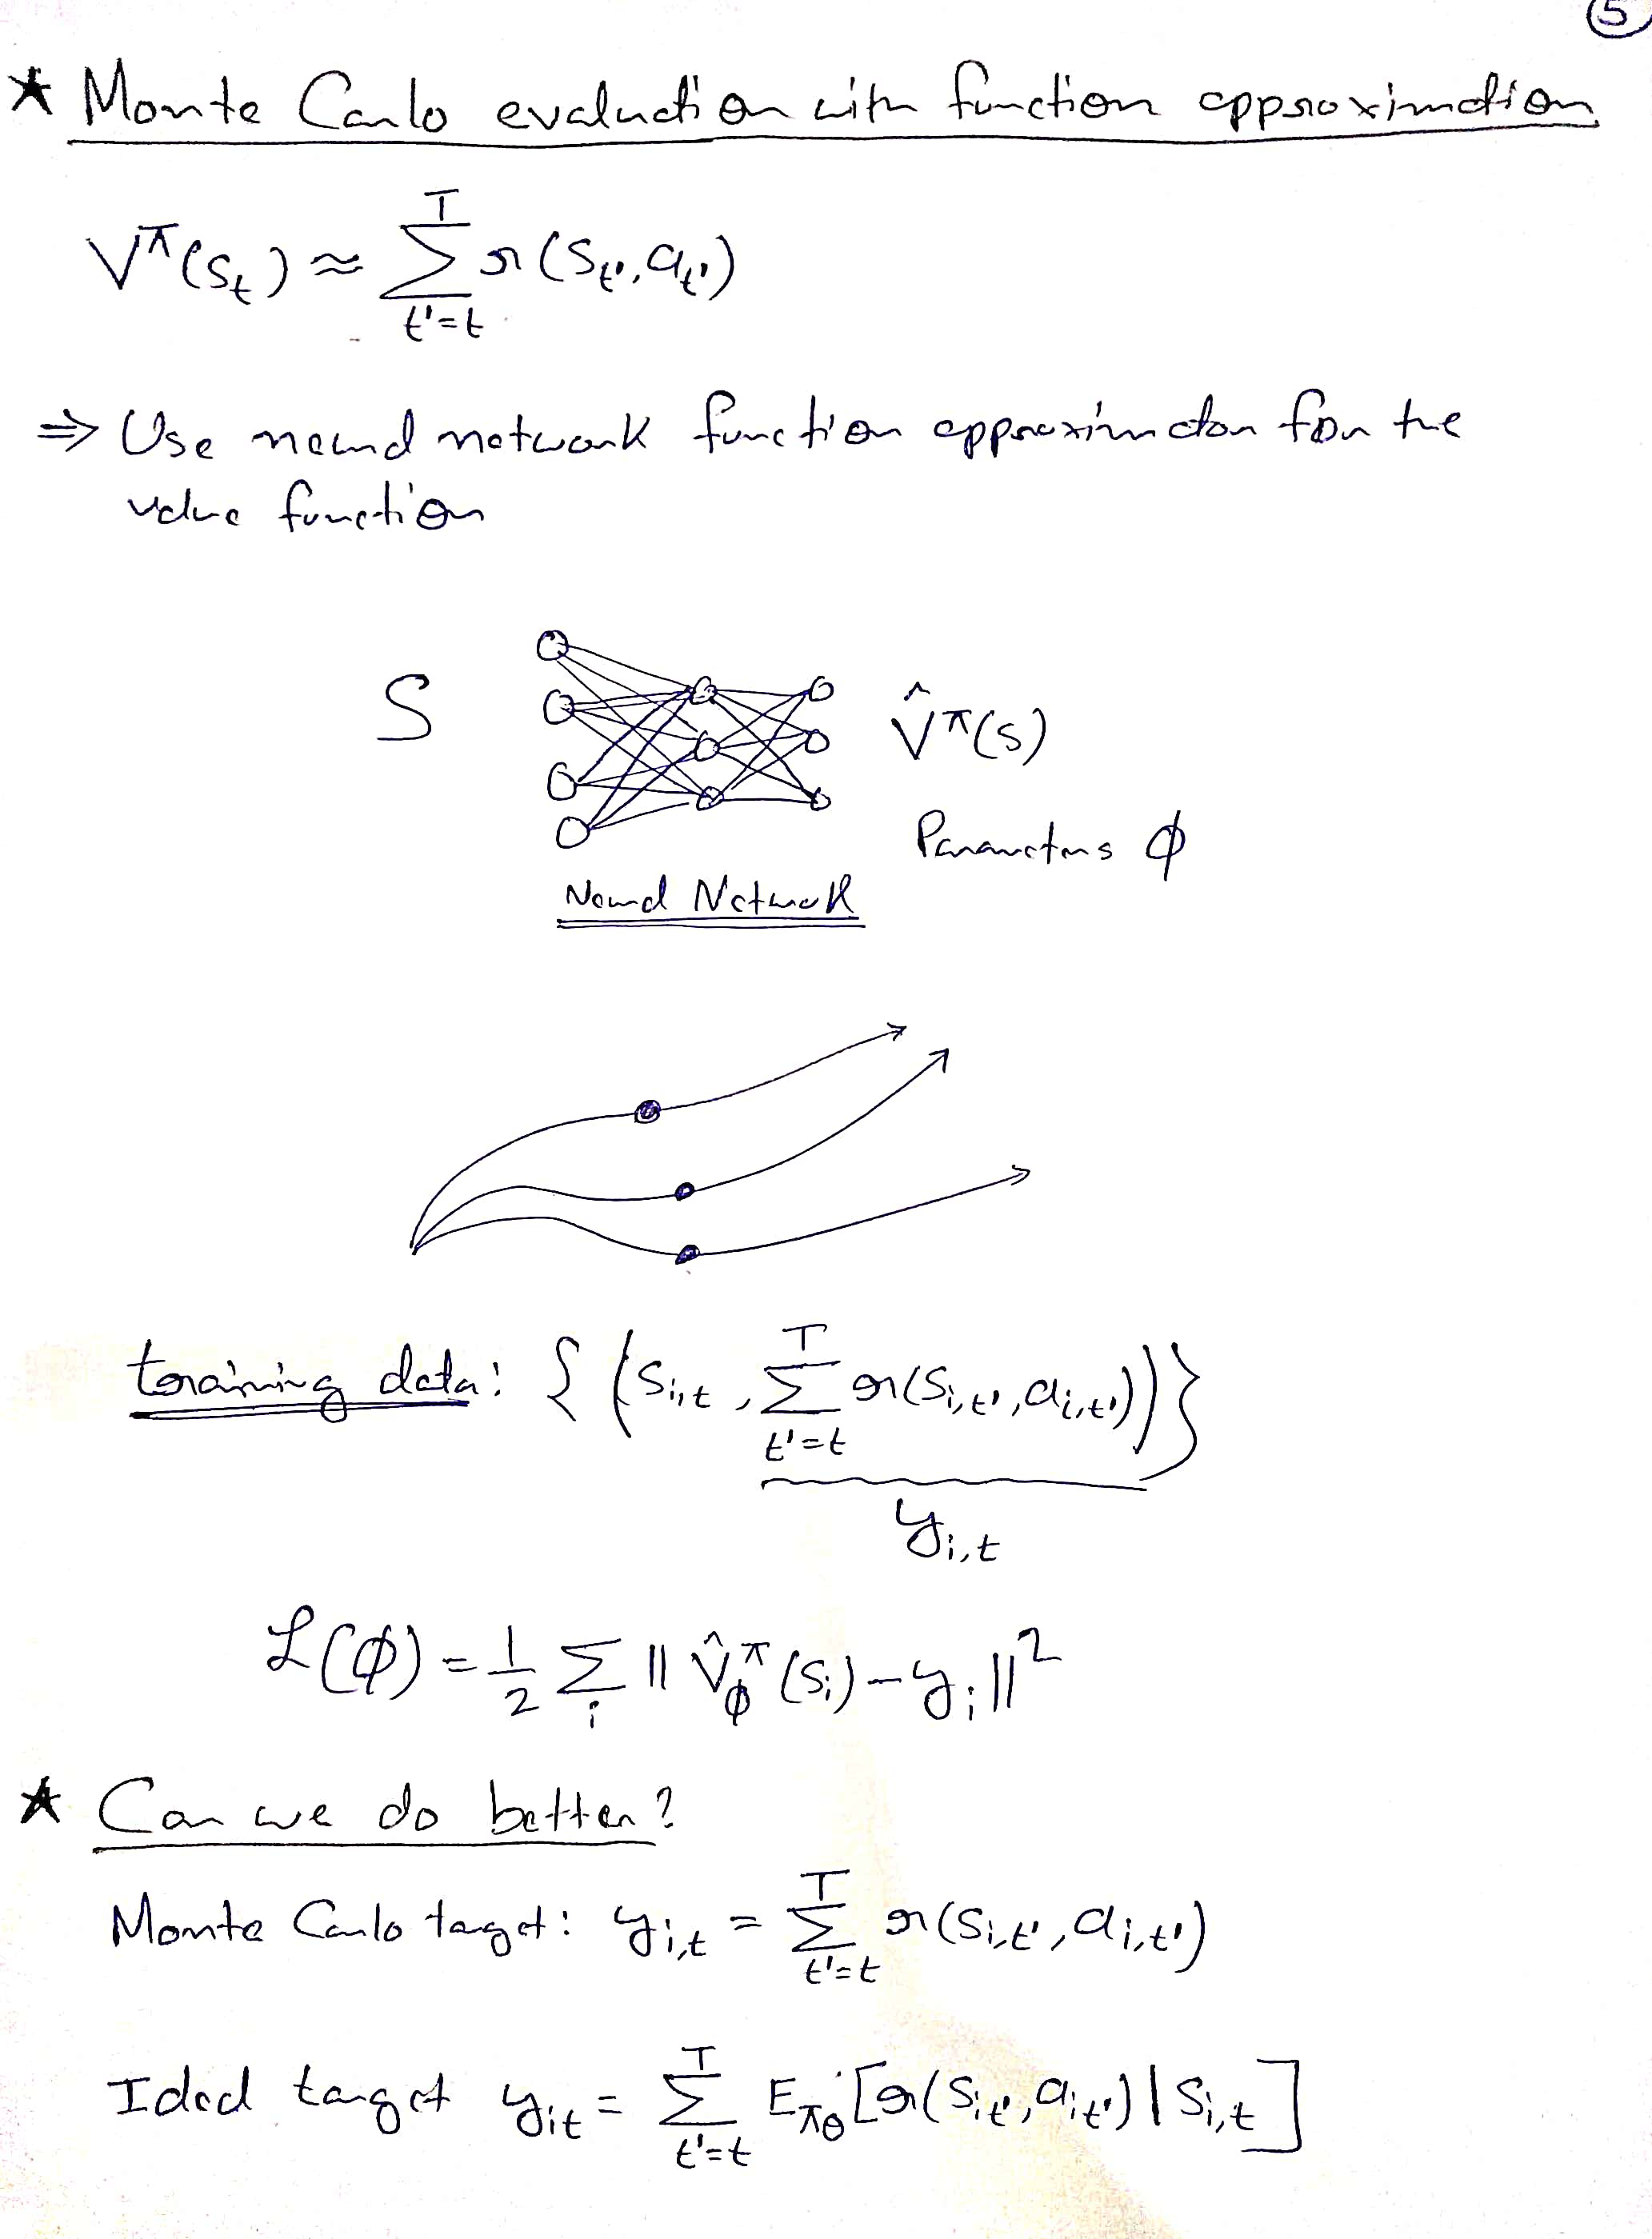 5
* Monte Carlo evaluation with function approximation
V^π(s_t) ≈ Σ_{t'=t}^{T} r(s_{t'}, a_{t'})
⇒ Use neural network function approximator for the
value function
S
V̂^π(s)
Parameters φ
Neural Network
training data: { (s_{i,t}, Σ_{t'=t}^{T} r(s_{i,t'}, a_{i,t'})) }
y_{i,t}
ℒ(φ) = 1/2 Σ_i || V̂_φ^π(s_i) - y_i ||²
* Can we do better?
Monte Carlo target: y_{i,t} = Σ_{t'=t}^{T} r(s_{i,t'}, a_{i,t'})
Ideal target y_{it} = Σ_{t'=t}^{T} E_{πθ}[r(s_{i,t'}, a_{i,t'}) | s_{i,t}]